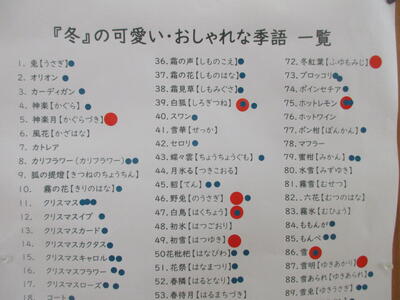 『冬』の可愛い・おしゃれな季語 一覧
1. 兎[うさぎ]
2. オリオン
3. カーディガン
4. 神楽[かぐら]
5. 神楽月[かぐらづき]
6. 風花[かざはな]
7. カトレア
8. カリフラワー(カリフラワー)
9. 狐の提燈[きつねのちょうちん]
10. 霧の花[きりのはな]
11. クリスマス
12. クリスマスイブ
13. クリスマスカード
14. クリスマスカクタス
15. クリスマスキャロル
16. クリスマスフラワー
17. クリスマスローズ
コート
36. 霜の声[しものこえ]
37. 霜の花[しものはな]
38. 霜見草[しもみぐさ]
39. 白狐[しろぎつね]
40. スワン
41. 雪華[せっか]
42. セロリ
43. 蝶々雲[ちょうちょうぐも]
44. 月氷る[つきこおる]
45. 貂[てん]
46. 野兎[のうさぎ]
47. 白鳥[はくちょう]
48. 初氷[はつごおり]
49. 初雪[はつゆき]
50 花枇杷[はなびわ]
51. 花祭[はなまつり]
52. 春隣[はるとなり]
53. 春待月[はるまちづき]
72. 冬紅葉[ふゆもみじ]
73. ブロッコリ
74. ポインセチア
75. ホットレモン
76. ホットワイン
77. ポン柑[ぽんかん]
78. マフラー
79. 蜜柑[みかん]
80. 水雪[みずゆき]
81. 霧雪[むせつ]
82. 六花[むつのはな]
83. 霧氷[むひょう]
84. ももんが
85. もんぺ
86. 雪
87. 雪明[ゆきあかり]
88. 雪あられ[ゆきあられ]
89. 雪兎[ゆきうさぎ]